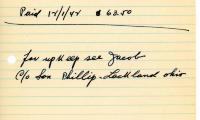 Paid 12/1/42 $ 63.50
for upkeep see Jacob
c/o Son Phillip - Lockland ohio